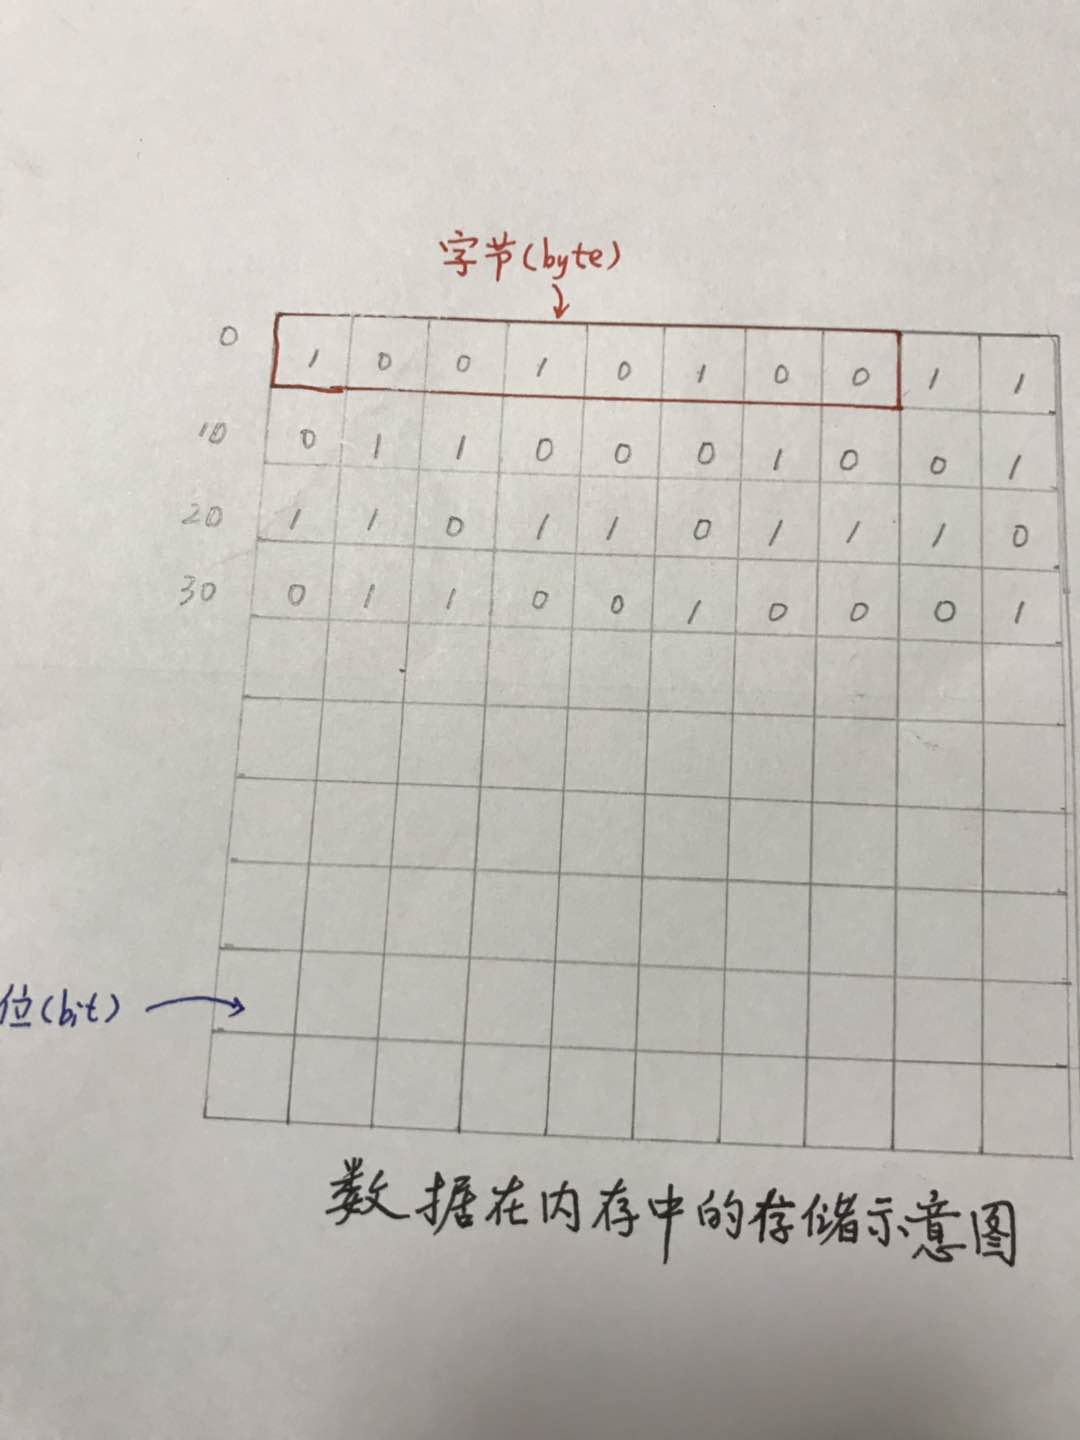 字节(byte)
↓
0 1 0 0 1 0 1 0 0 1 1
10 0 1 1 0 0 0 1 0 0 1
20 1 1 0 1 1 0 1 1 1 0
30 0 1 1 0 0 1 0 0 0 1
位(bit) →
数据在内存中的存储示意图